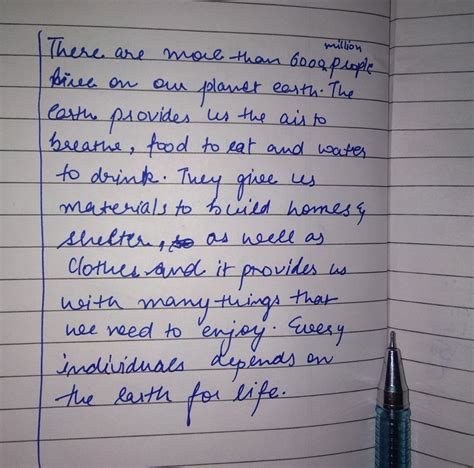 There are more than 6000 million people
live on our planet earth. The
earth provides us the air to
breathe, food to eat and water
to drink. They give us
materials to build homes &
shelter, as well as
clothes and it provides us
with many things that
we need to enjoy. Every
individuals depends on
the earth for life.